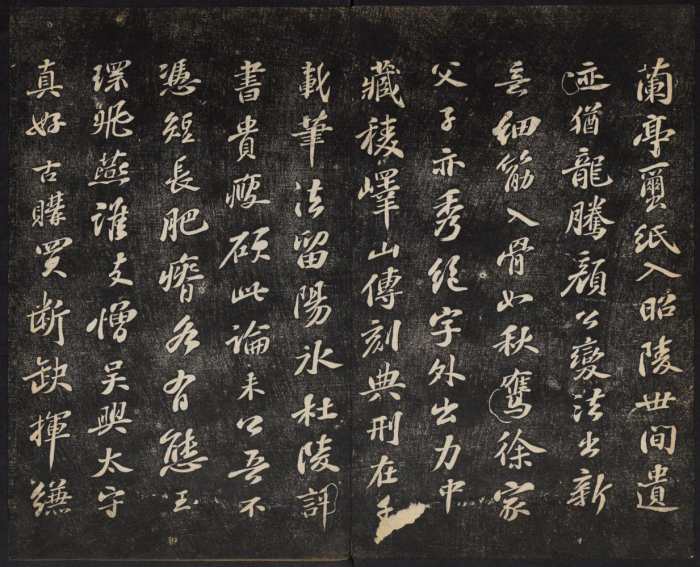 蘭亭繭紙入昭陵世間遺
迹猶龍騰顏公變法出新
意細筋入骨如秋鷹徐家
父子亦秀絕字外出力中
藏稜嶧山傳刻典刑在千
載筆法留陽冰杜陵評
書貴瘦硬此論未公吾不
憑短長肥瘠各有態玉
環飛燕誰敢憎吳興太守
真好古購買断缺揮縑